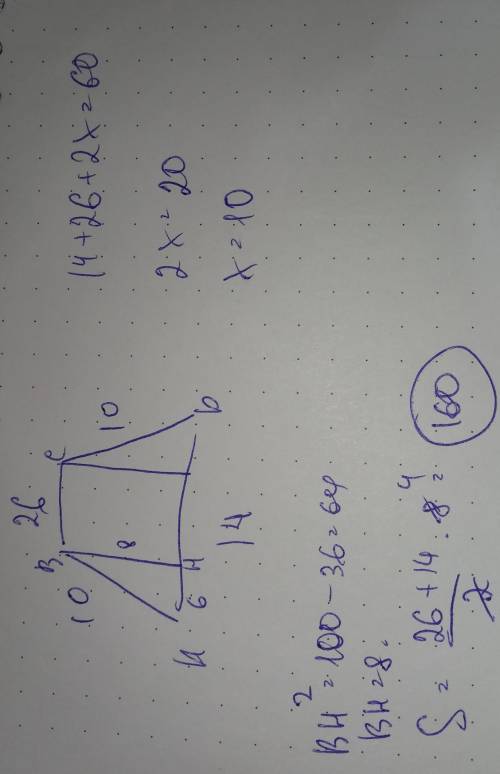 14+26+2x=60
2x=20
x=10
26
B
C
10
8
10
H
6
D
14
BH²=100-36=64
BH=8.
S = 26+14/2 · 8 4 = 160